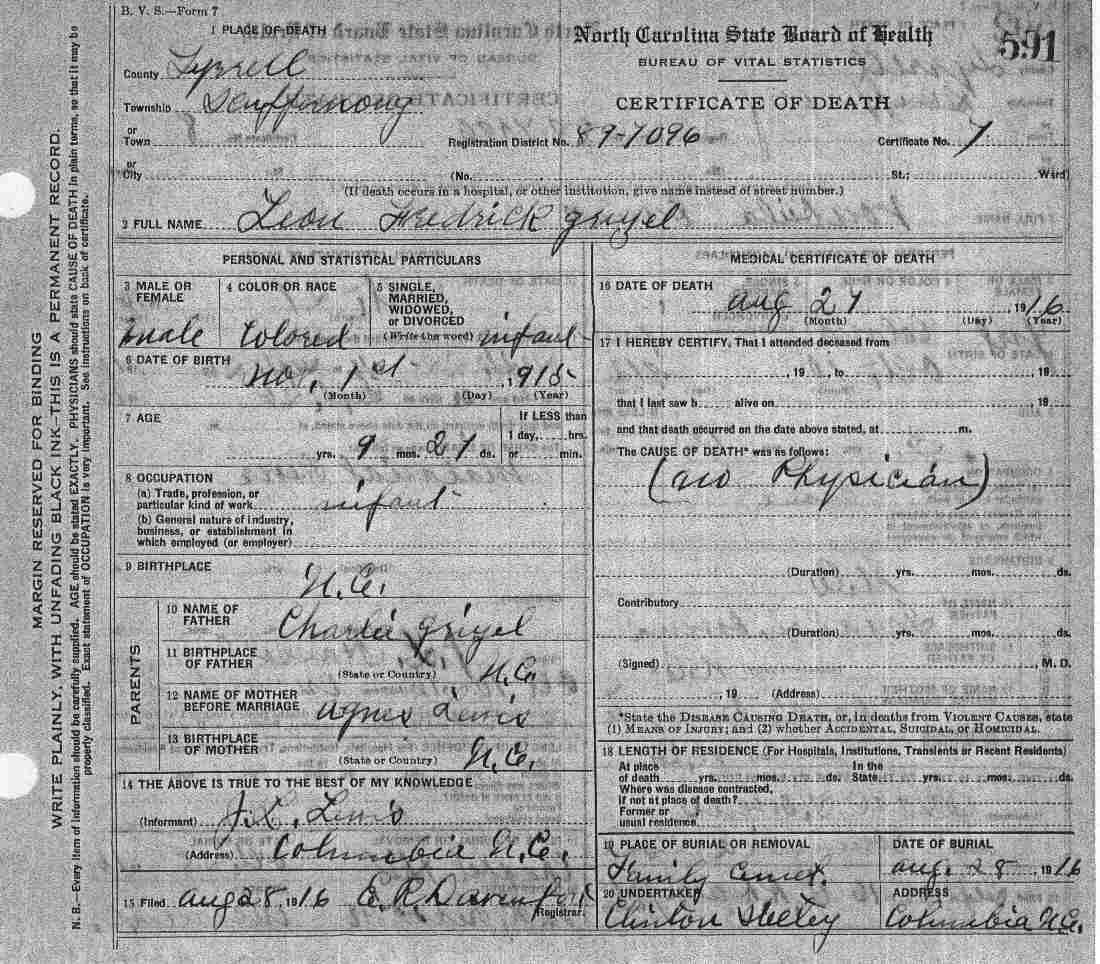 B. V. S.—Form 7
1 PLACE OF DEATH
North Carolina State Board of Health
591
BUREAU OF VITAL STATISTICS
CERTIFICATE OF DEATH
County Tyrrell
Township Scuppernong
or Town
Registration District No. 89-7096
Certificate No. 7
or City
(No.
St.;
Ward)
(If death occurs in a hospital, or other institution, give name instead of street number.)
2 FULL NAME Leon Fredrick
PERSONAL AND STATISTICAL PARTICULARS
3 MALE OR FEMALE
male
4 COLOR OR RACE
Colored
5 SINGLE, MARRIED, WIDOWED, or DIVORCED
(Write the word) infant
6 DATE OF BIRTH
1st, 1915
(Month) (Day) (Year)
7 AGE
yrs. 9 mos. 27 ds.
If LESS than
1 day, hrs.
or min.
8 OCCUPATION
(a) Trade, profession, or
particular kind of work infant
(b) General nature of industry,
business, or establishment in
which employed (or employer)
9 BIRTHPLACE
N.C.
PARENTS
10 NAME OF FATHER
Charlie
11 BIRTHPLACE OF FATHER
(State or Country) N.C.
12 NAME OF MOTHER BEFORE MARRIAGE
Agnes Lewis
13 BIRTHPLACE OF MOTHER
(State or Country) N.C.
14 THE ABOVE IS TRUE TO THE BEST OF MY KNOWLEDGE
(Informant) Lewis
(Address) Columbia N.C.
15 Filed Aug 28, 1916 Davenport
Registrar.
MEDICAL CERTIFICATE OF DEATH
16 DATE OF DEATH
Aug 27 1916
(Month) (Day) (Year)
17 I HEREBY CERTIFY, That I attended deceased from
, 19 , to , 19 ,
that I last saw h alive on , 19 ,
and that death occurred on the date above stated, at m.
The CAUSE OF DEATH* was as follows:
(no Physician)
(Duration) yrs. mos. ds.
Contributory
(Duration) yrs. mos. ds.
(Signed) , M. D.
, 19 (Address)
*State the DISEASE CAUSING DEATH, or, in deaths from VIOLENT CAUSES, state
(1) MEANS OF INJURY; and (2) whether ACCIDENTAL, SUICIDAL, or HOMICIDAL.
18 LENGTH OF RESIDENCE (For Hospitals, Institutions, Transients or Recent Residents)
At place In the
of death yrs. mos. ds. State yrs. mos. ds.
Where was disease contracted,
if not at place of death?
Former or
usual residence
19 PLACE OF BURIAL OR REMOVAL
Family
DATE OF BURIAL
Aug. 28, 1916
20 UNDERTAKER
Clinton
ADDRESS
Columbia N.C.
MARGIN RESERVED FOR BINDING
WRITE PLAINLY, WITH UNFADING BLACK INK—THIS IS A PERMANENT RECORD.
N. B.—Every item of information should be carefully supplied. AGE should be stated EXACTLY. PHYSICIANS should state CAUSE OF DEATH in plain terms, so that it may be
properly classified. Exact statement of OCCUPATION is very important. See instructions on back of certificate.